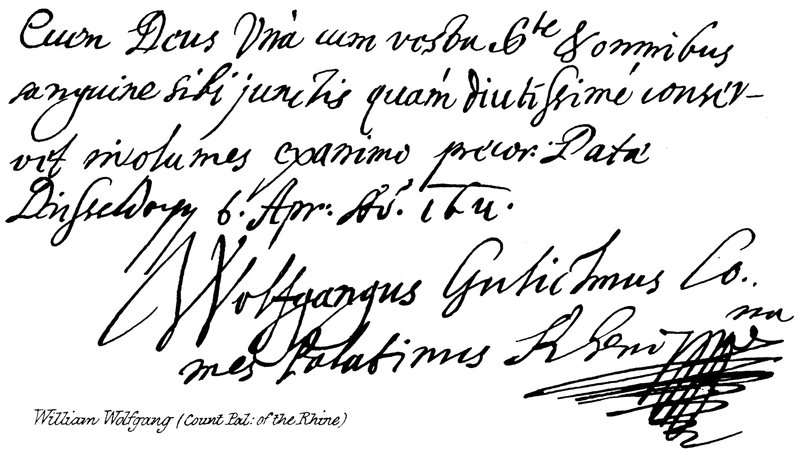 Cum Deus Unà cum vestra Ste & omnibus
sanguine sibi junctis quàm diutissimé conser-
vet incolumes exanimo precor. Data
Düsseldorp 6. Apr: Aō.
Wolfgangus Guliclmus Co.
mes Palatinus Rheni
William Wolfgang (Count Pal: of the Rhine)